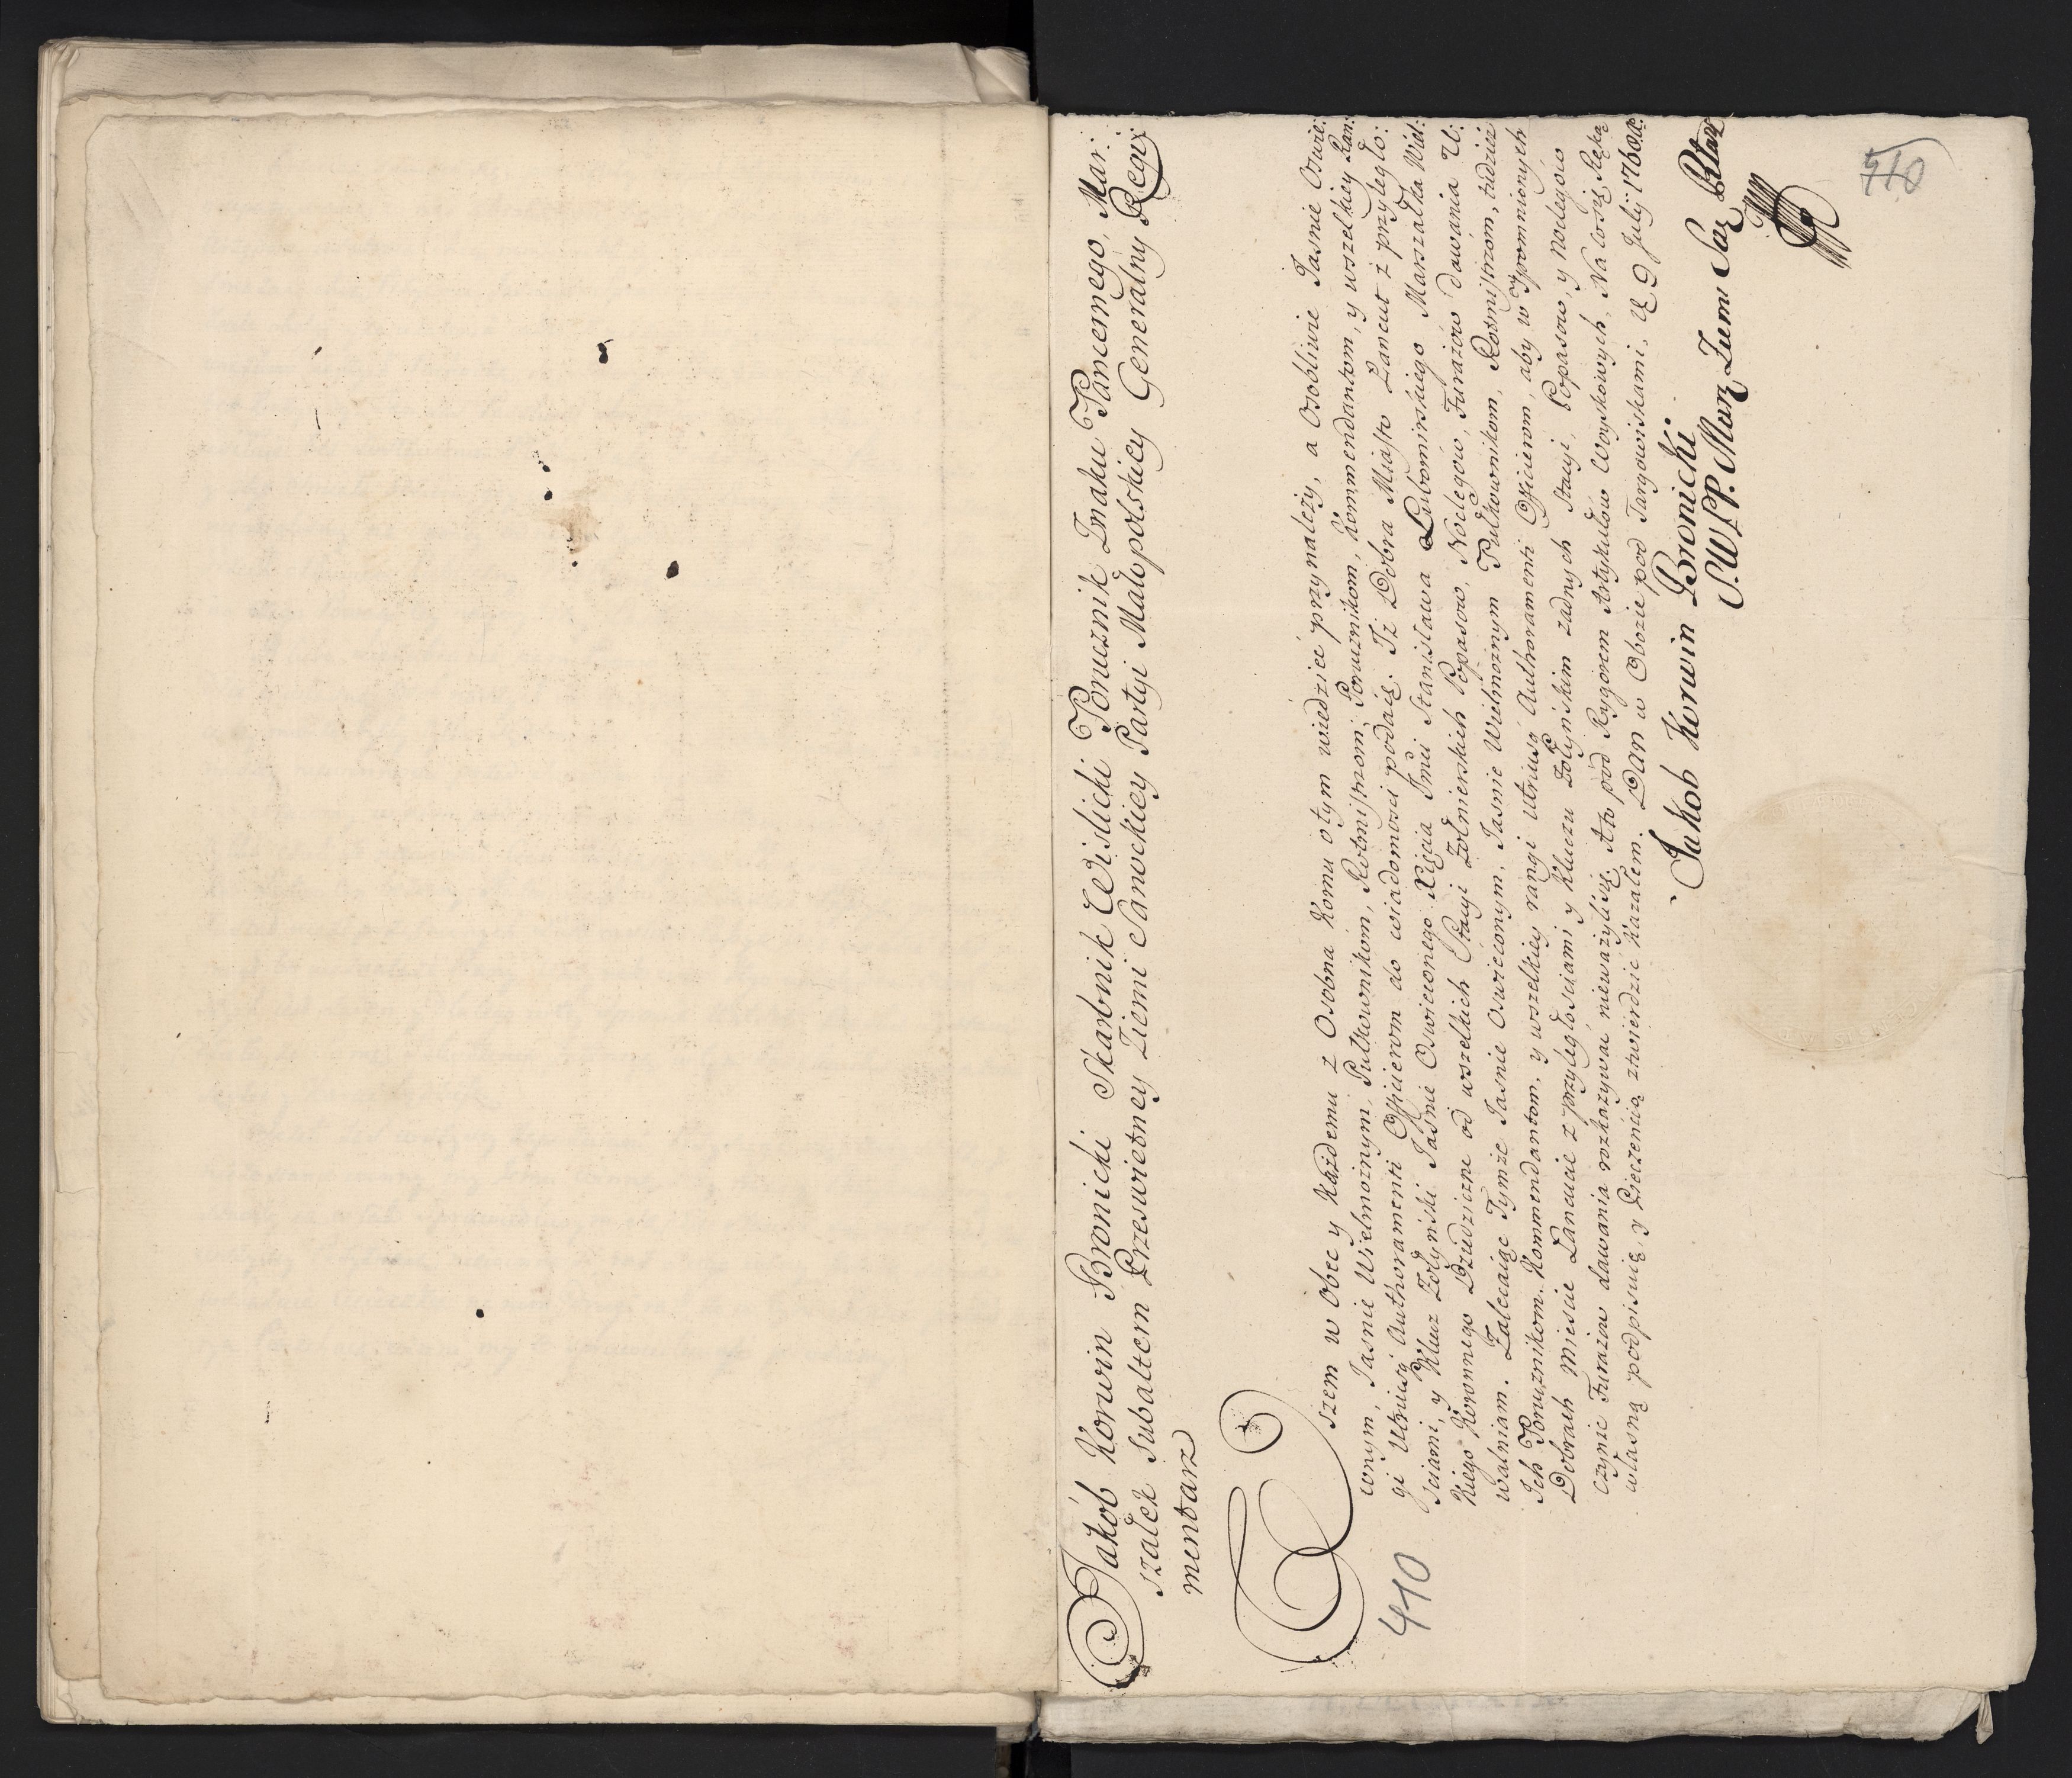 Jakób Korwin Bronicki Skarbnik Wislicki Porucznik Znaku Pancernego, Mar:
szałek Subaltern Przeswietney Ziemi Sanockiey Partyi Małopolskiey Generalny Regi
mentarz
Wszem w Obec y Każdemu z Osobna Komu o tym wiedziec przynależy, a Osobliwie Jasnie Oswie:
conym, Jasnie Wielmożnym, Pułkownikom, Rotmistrzom, Porucznikom, Kommendantom, y wszelkiey Ran:
gi Utriusq Authoramenti Officierom do wiadomosci podaię. Iż Dobra Miasto Łancut z przyległo:
sciami, y Klucz Żołyński Jasnie Oswieconego Xięcia Jmci Stanisława Lubomirskiego Marszałka Wiel:
kiego Koronnego Dziedziczne od wszelkich Stacyi Żołnierskich Popasow, Noclegow, Furażow dawania U:
walniam. Zalecaiąc Tymże Jasnie Oswieconym, Jasnie Wielmożnym Pułkownikom, Rotmistrzom, tudziesz
Ich Porucznikom, Kommendantom, y wszelkiey rangi utriusq Authoramenti Officierom, aby w wspomnionych
Dobrach Miescie Łancucie z przyległosciami y Kluczu Żołyńskim żadnych Stacyi, Popasow, y Noclegow
czynic Furażow dawania rozkazywac nieważyli się. A to pod Rygorem Artykułow Woyskowych, Na co się Ręką
własną podpisuię, y Pieczęnią ztwierdzic Kazałem. Dan w Obozie pod Targowiskami, d. 9 July 1769. R:
Jakob Korwin Bronicki
S.W.P.P. Marz Ziemi San
410
410